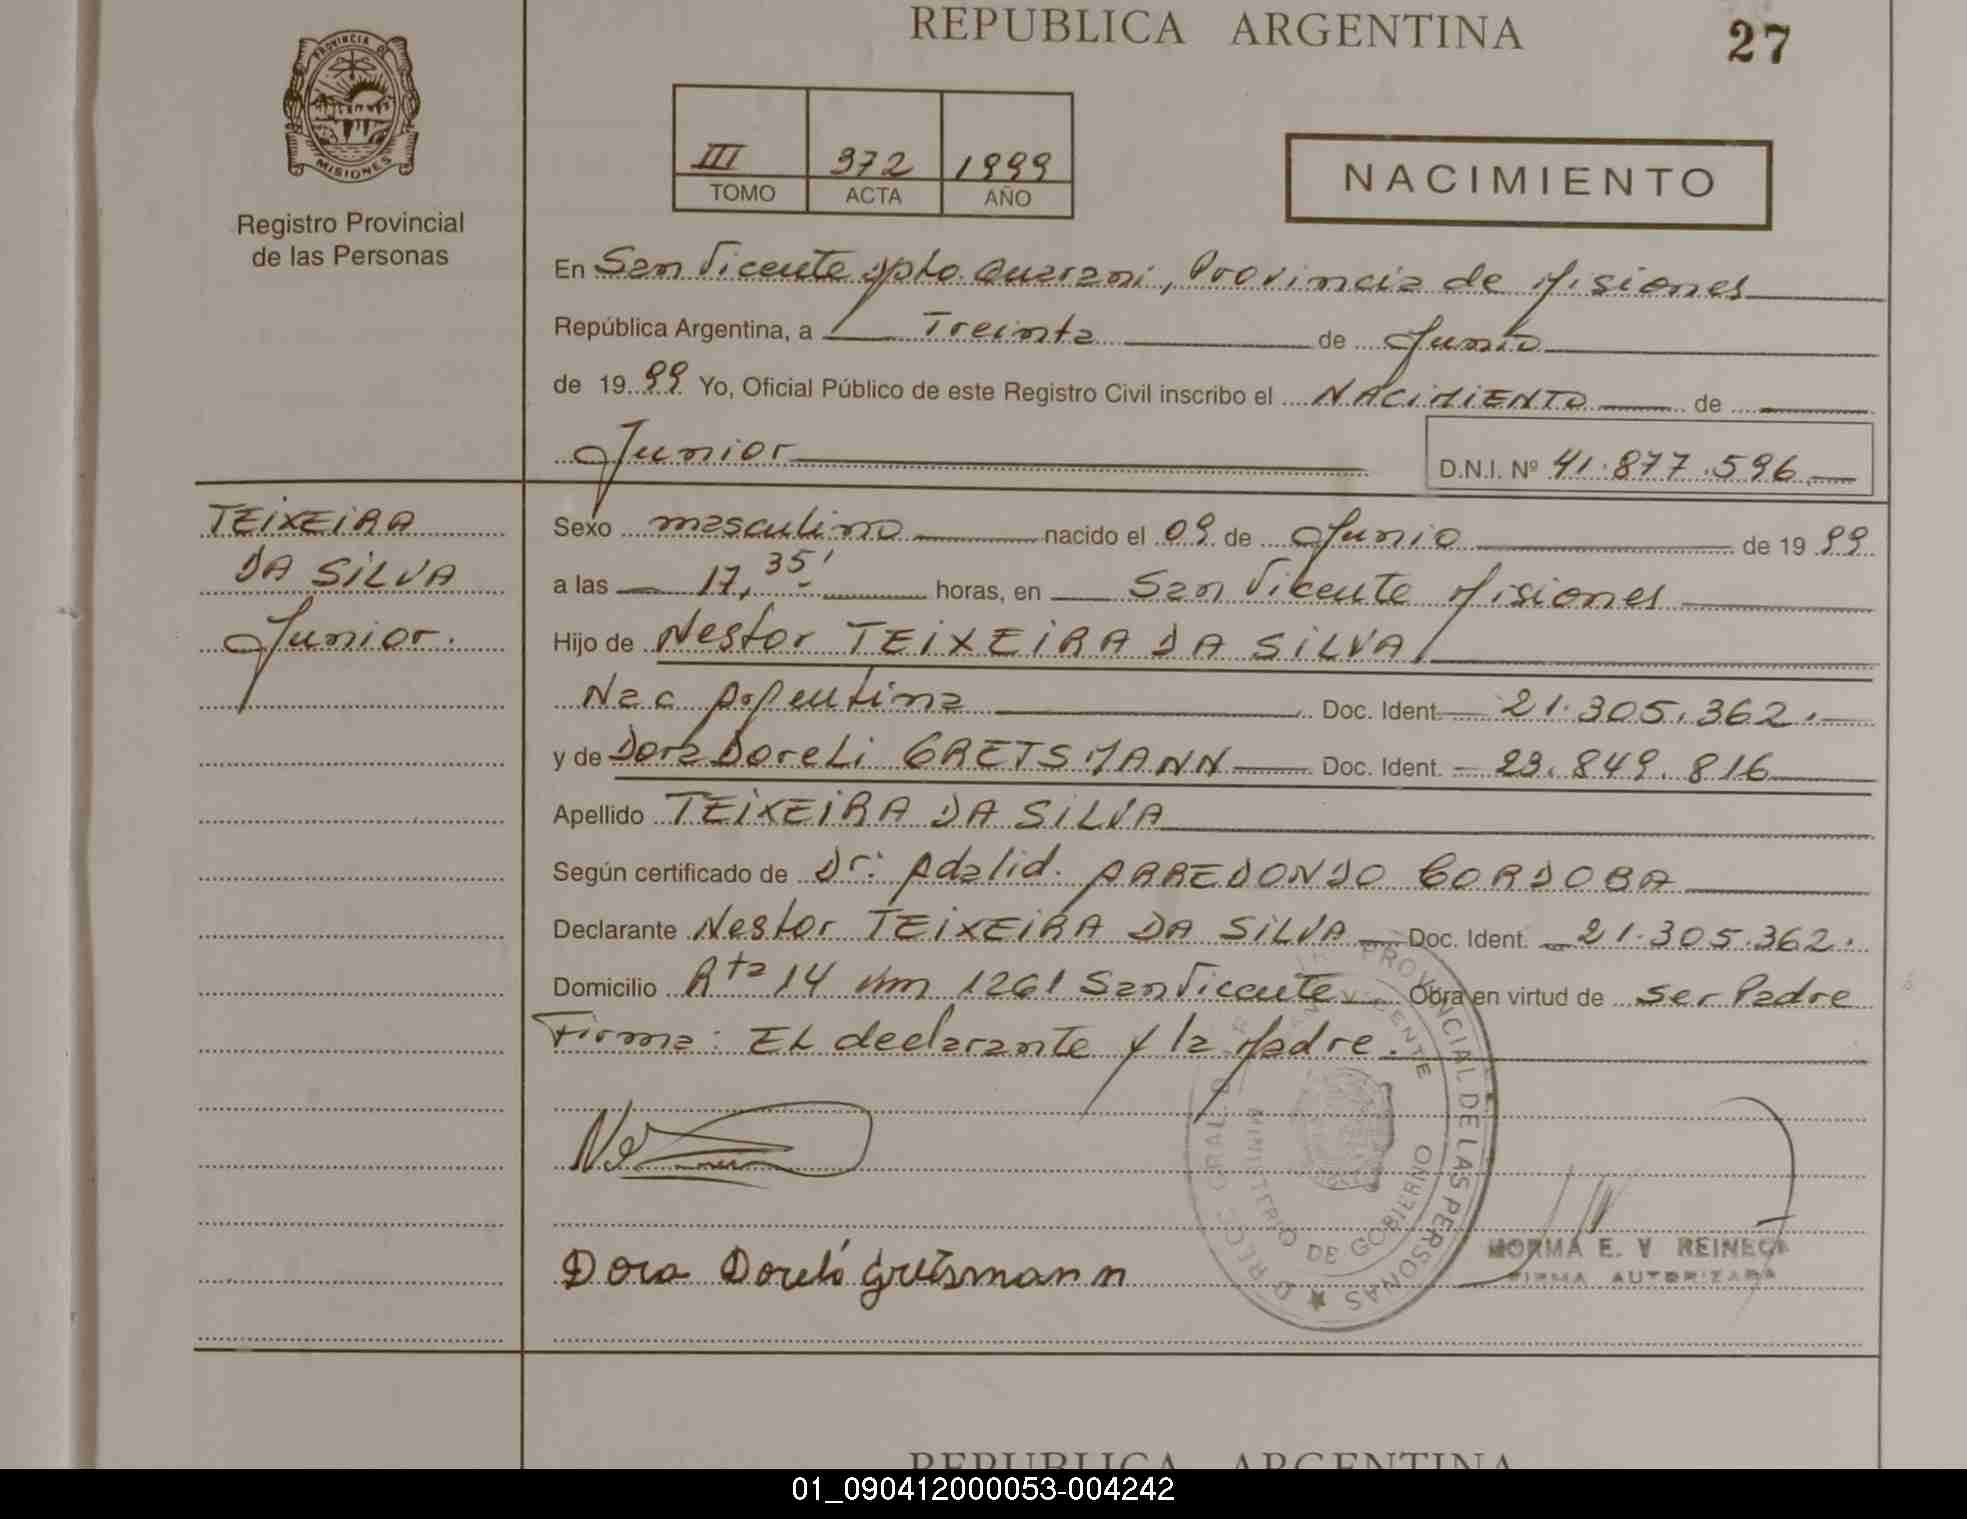 REPUBLICA ARGENTINA
27
PROVINCIA DE
MISIONES
Registro Provincial
de las Personas
III 372 1999
TOMO ACTA AÑO
NACIMIENTO
En San Vicente Dpto. Guarani, Provincia de Misiones
República Argentina, a Treinta de Junio
de 1999 Yo, Oficial Público de este Registro Civil inscribo el NACIMIENTO de
Junior
D.N.I. Nº 41.877.596
TEIXEIRA
DA SILVA
Junior.
Sexo masculino nacido el 09 de Junio de 1999
a las 17, 35' horas, en San Vicente Misiones
Hijo de Nestor TEIXEIRA DA SILVA
Nac Argentina Doc. Ident. 21.305.362.
y de Dora Doreli GRETSMANN Doc. Ident. 23.849.816
Apellido TEIXEIRA DA SILVA
Según certificado de Dr: Adalid. ARREDONDO CORDOBA
Declarante Nestor TEIXEIRA DA SILVA Doc. Ident. 21.305.362.
Domicilio Rta 14 km 1261 San Vicente Obra en virtud de ser Padre
Firma: EL declarante y la Madre.
PROVINCIAL DE LAS PERSONAS
DE GOBIERNO
NORMA E. V REINECK
FIRMA AUTORIZADA
Dora Doreli Gretsmann
REPUBLICA ARGENTINA
01_090412000053-004242